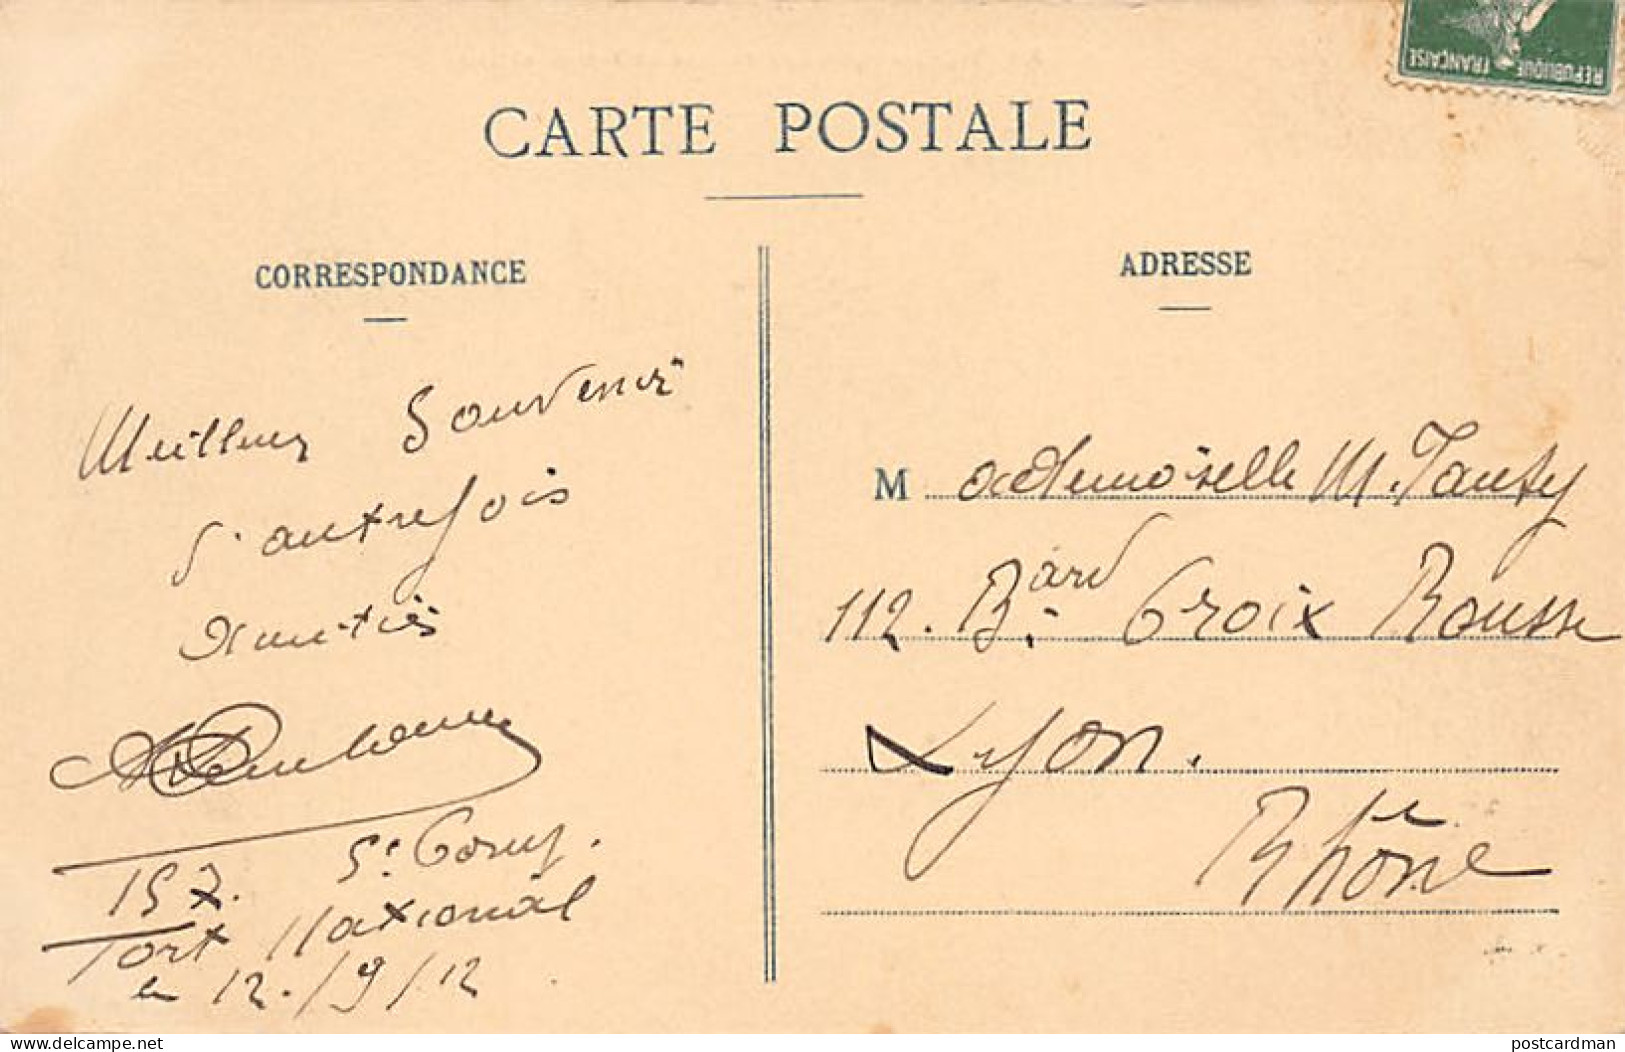 REPUBLIQUE FRANÇAISE
CARTE POSTALE
CORRESPONDANCE
Meilleur Souvenir
d'autrefois
Amitiés
157. 5e Comp.
Fort National
le 12./9/12
ADRESSE
Mademoiselle M.
112. Bard Croix Rousse
Lyon.
Rhône
delcampe.net
postcardman